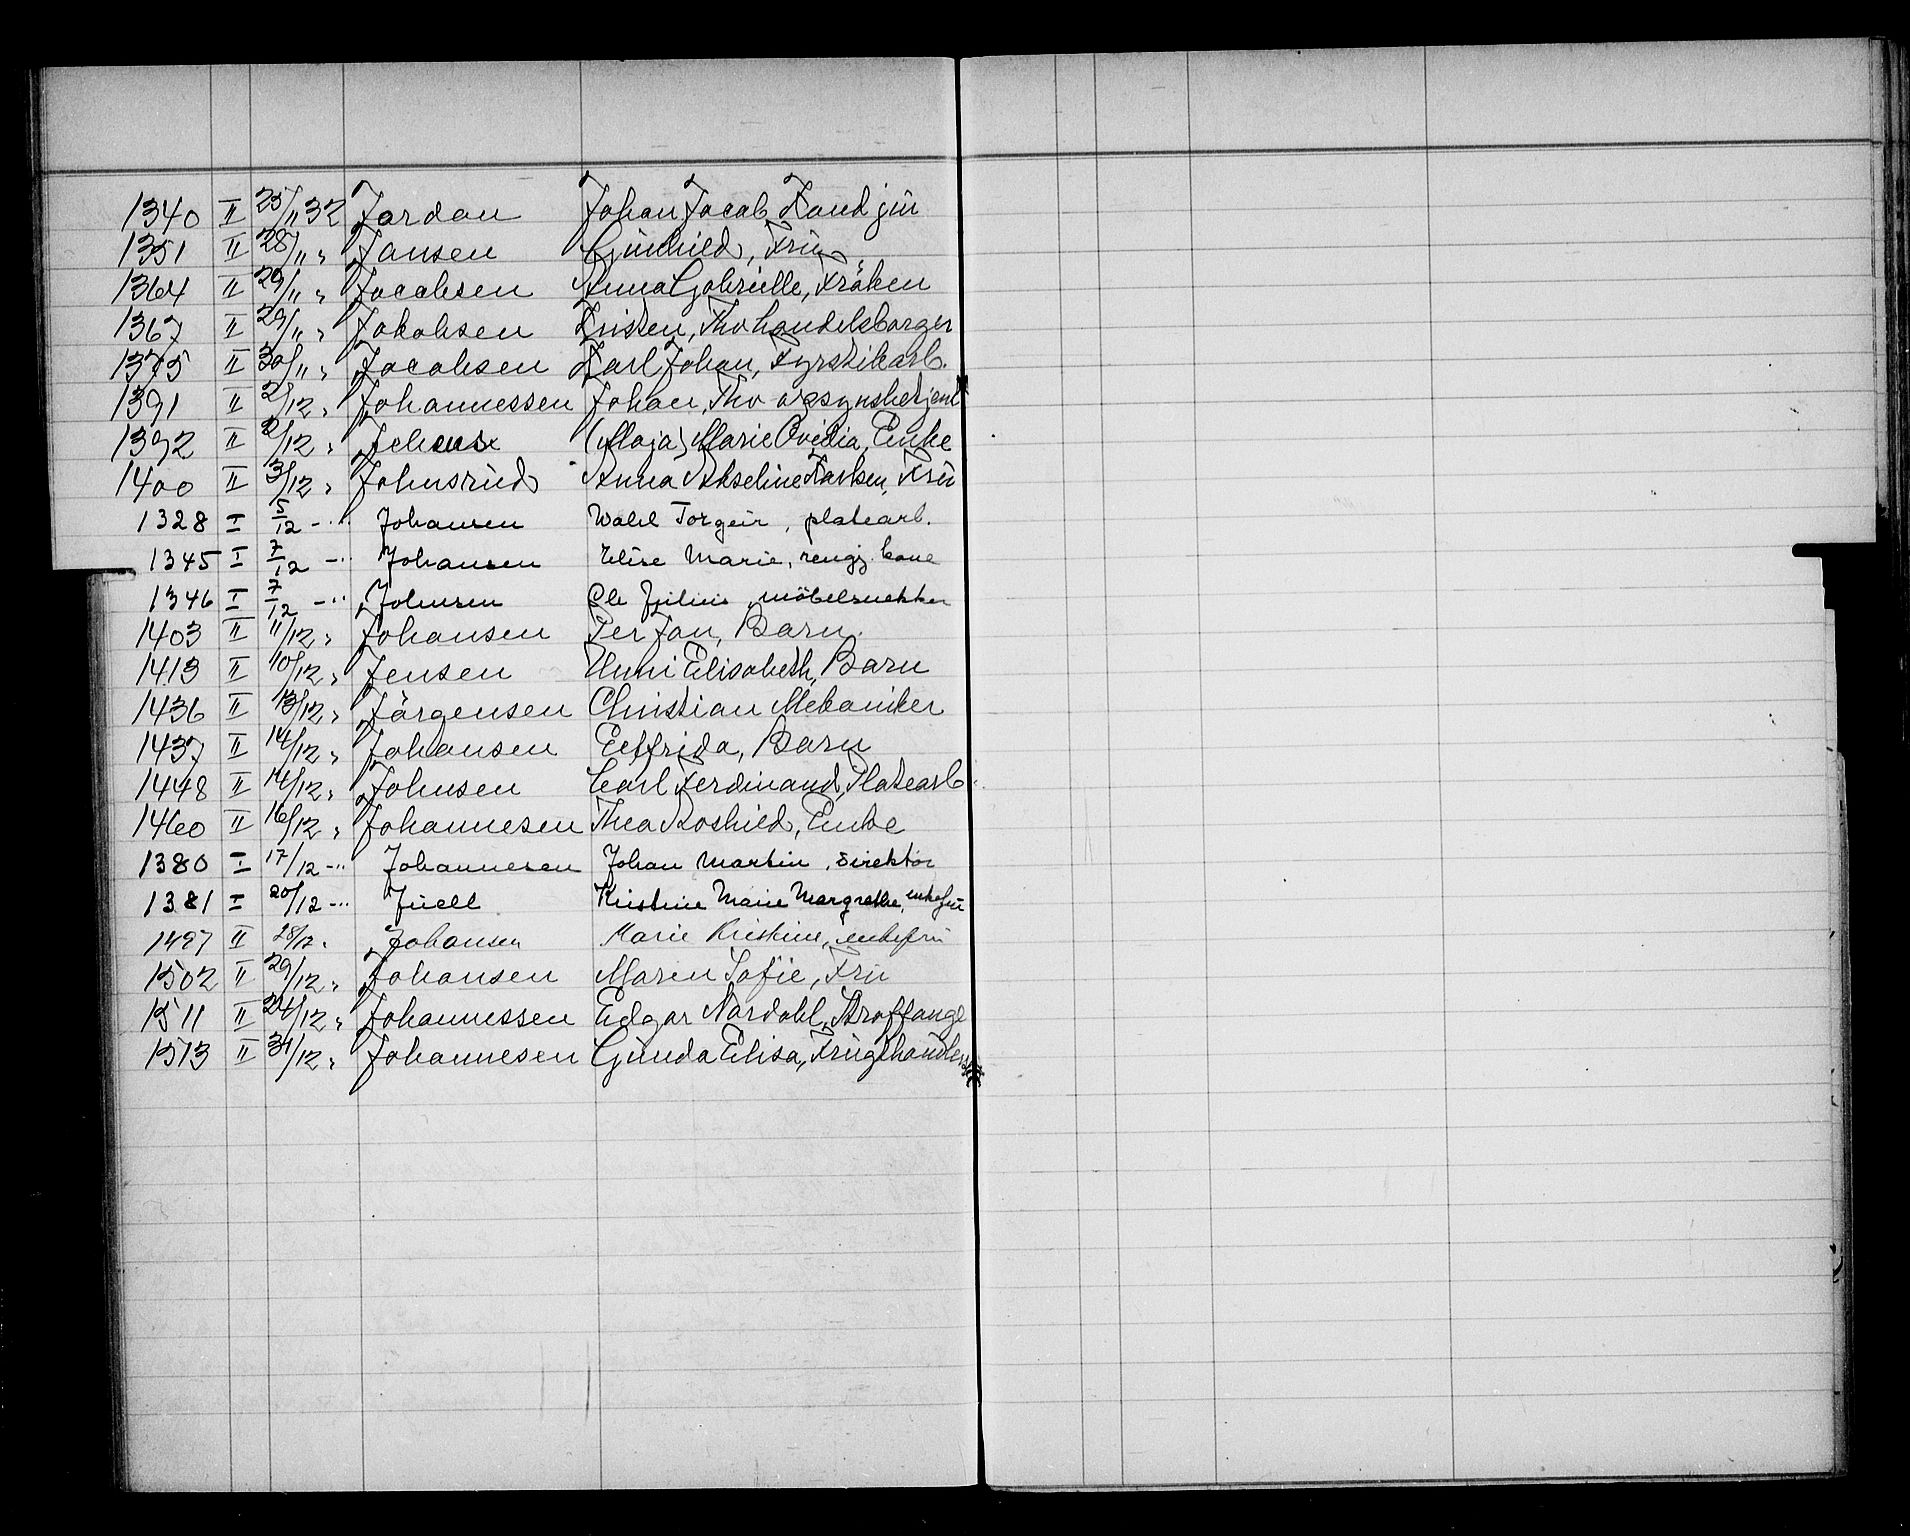 1340 II 25/11 32 Jordan Johan Jacob Kand jur
1351 II 28/11 " Jansen Gunhild, Fru
1364 II 29/11 " Jacobsen Anna Gabrielle, Fröken
1367 II 29/11 " Jakobsen Kristen, Fhv handelsborger
1375 II 30/11 " Jacobsen Karl Johan, Fyrstikarb.
1391 II 2/12 " Johannessen Johan, Fhv opsynsbetjent
1392 II 2/12 " (Maja) Marie Ovidia, Enke
1400 II 3/12 " Johnsrud Anna Akseline Karlsen, Fru
1328 I 5/12 -"- Johansen Wahl Torgeir, platearb.
1345 I 7/12 -"- Johansen Elise Marie, rengj. kone
1346 I 7/12 -"- Johnsen Ole Julius, möbelsnekker
1403 II 11/12 " Johansen Per Jan, Barn.
1413 II 10/12 " Jensen Unni Elisabeth, Barn
1436 II 13/12 " Jörgensen Christian Mekaniker
1437 II 14/12 " Johansen Elfrida, Barn
1448 II 14/12 " Johnsen Carl Ferdinand, Platearb.
1460 II 16/12 " Johannesen Thea Roshild, Enke
1380 I 17/12 -"- Johannesen Johan Martin, Direktör
1381 I 20/12 -"- Juell Kristine Marie Margrethe, enkefru
1497 II 28/12 " Johansen Marie Kristine, enkefru
1502 II 29/12 " Johansen Maren Sofie, Fru
1511 II 24/12 " Johannessen Edgar Nardahl, Straffange
1513 II 31/12 " Johannesen Gunda Elisa, Frugthandler